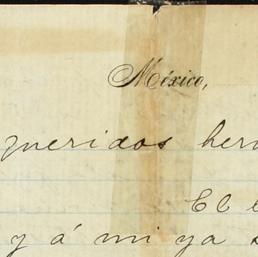 México,
queridos her
El e
y á mi ya s